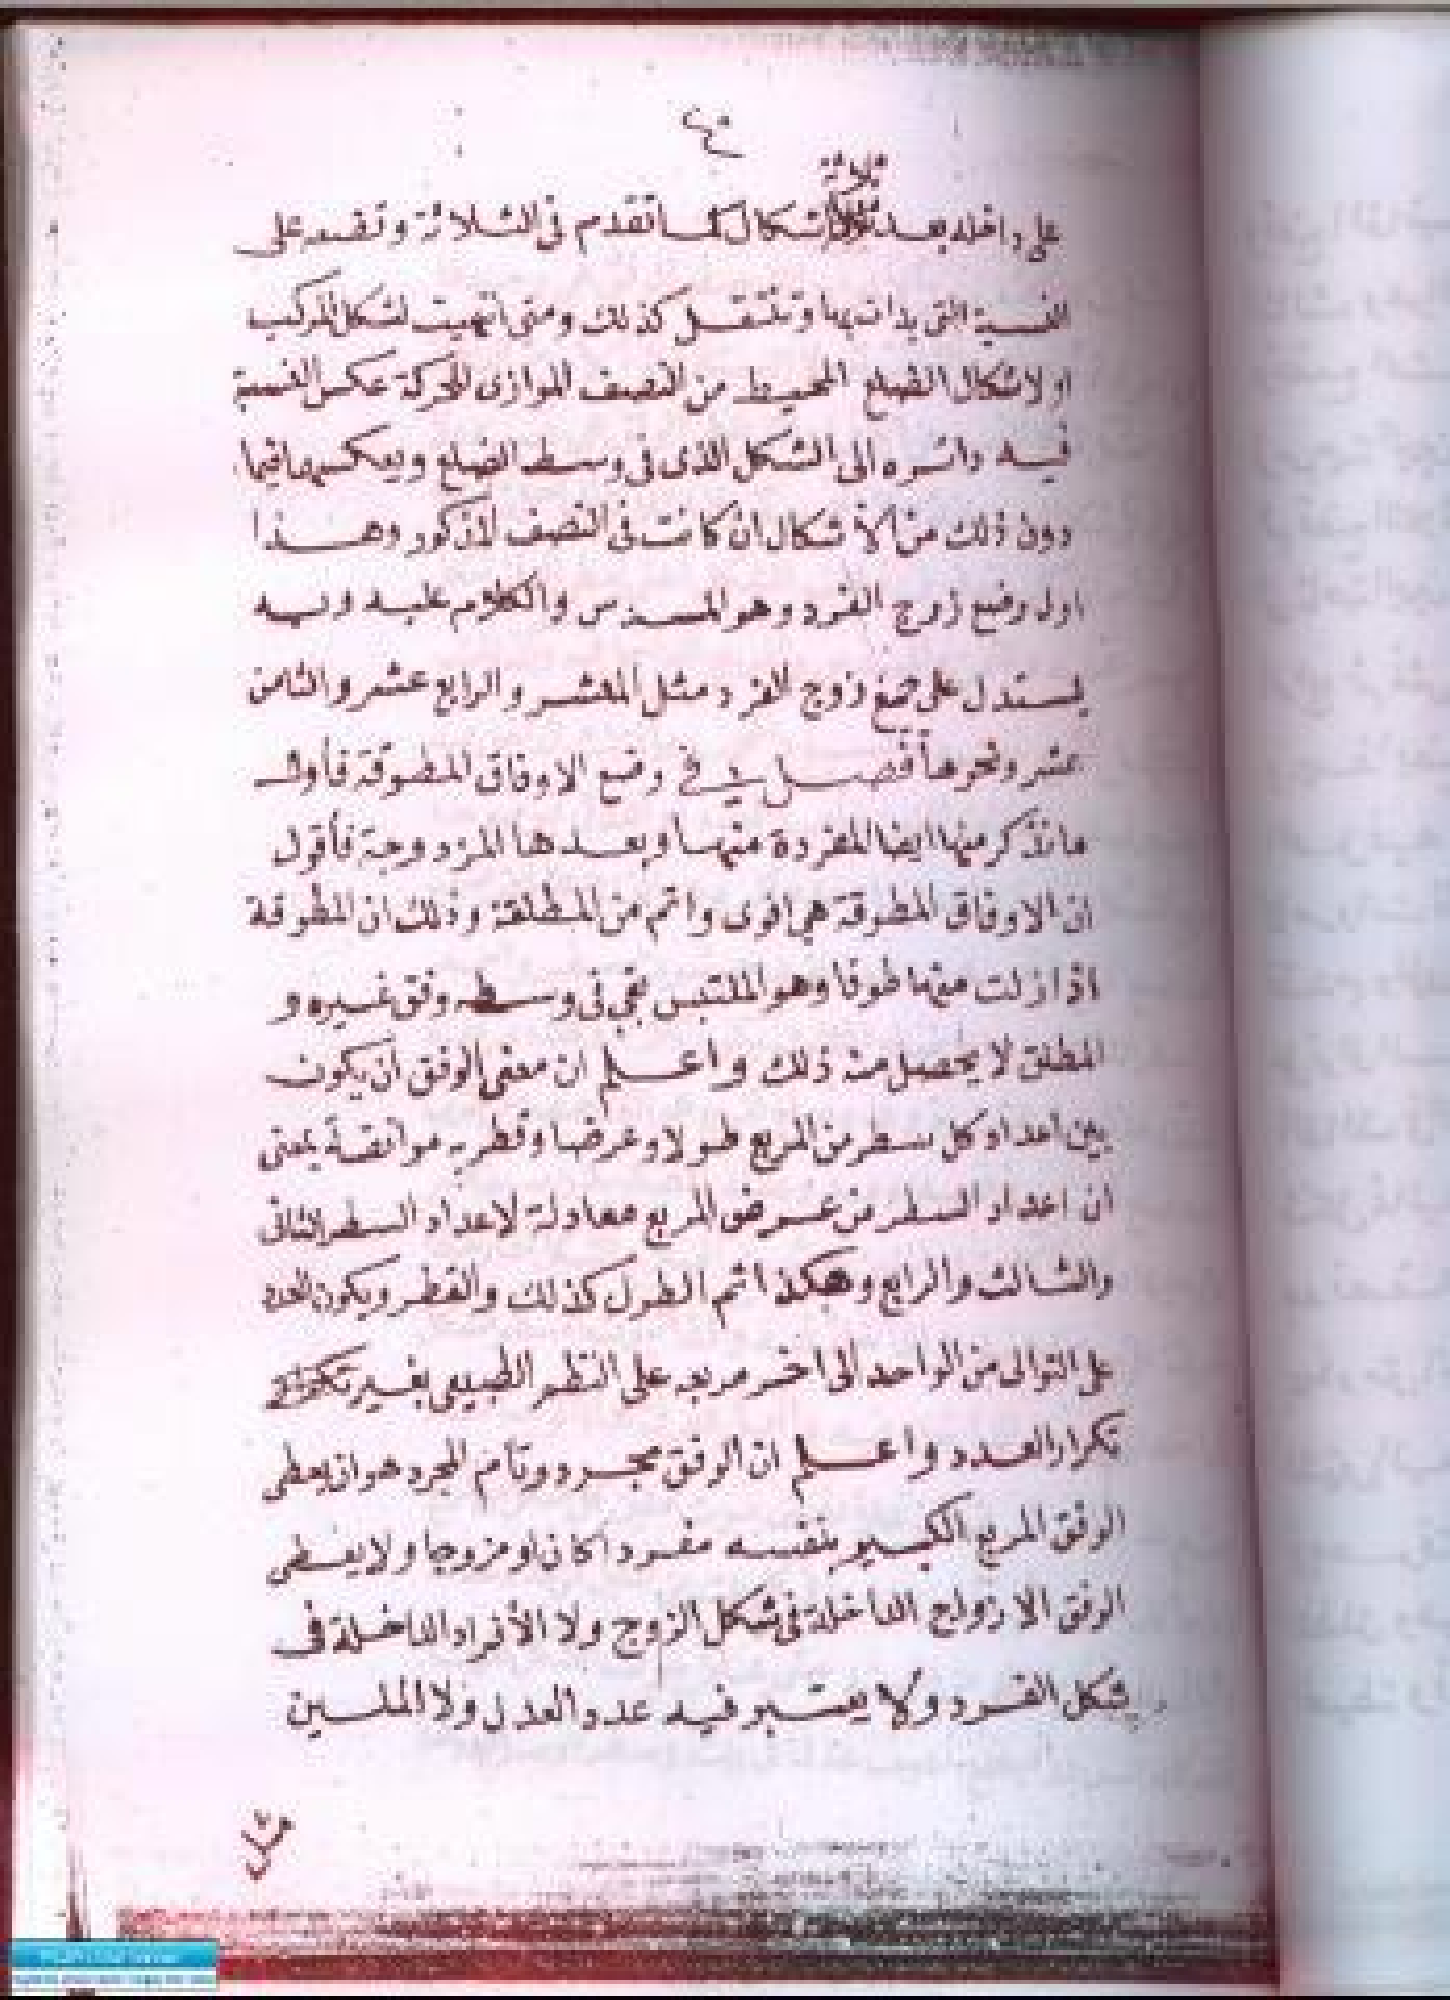 ثلاثة
على داخله بعد اشكال كما تقدم فى الثلاثة وتضعه على
النسبة التى بدات بها وتنتقل كذلك ومتى انتهيت لشكل المركب
او لاشكال الضلع المحيط من النصف الموازى للحركة عكس النسبة
فيه داشره الى الشكل الذى فى وسط الضلع وبعكسها فيما
دون ذلك من الأشكال ان كانت فى النصف المذكور وهذا
اول وضع زوج الفرد وهو المسدس والكلام عليه وبه
يستدل على جميع زوج الفرد مثل المعشر والرابع عشر والثامن
عشر ونحوها فصل فى وضع الاوفاق المطوقة فأول
ما نذكر منها ايضا المفردة منها وبعدها المزدوجة فأقول
ان الاوفاق المطوقة هى اقوى واتم من المطلقة وذلك ان المطوقة
اذا زلت منها طوقا وهو الملتبس بقى فى وسطه وفق غيره و
المطلق لا يحصل منه ذلك واعلم ان معنى الوفق ان يكون
بين اعداد كل سطر من المربع طولا وعرضا وقطريه موافقة بمعنى
ان اعداد السطر من عرض المربع معادلة لاعداد السطر الثانى
والثالث والرابع وهكذا ثم الطول كذلك والقطر ويكون العدد
على التوالى من الواحد الى اخر مربعه على النظم الطبيعى بغير
تكرار العدد واعلم ان الوفق مجرد وتام المجرد هو ان يعطى
الوفق المربع الكبير بنفسه مفردا كان او مزوجا ولا يعطى
الوفق الازواج الداخلة فى شكل الزوج ولا الأفراد الداخلة فى
شكل الفرد ولا يعتبر فيه عدد العدل ولا الملبس
مثل